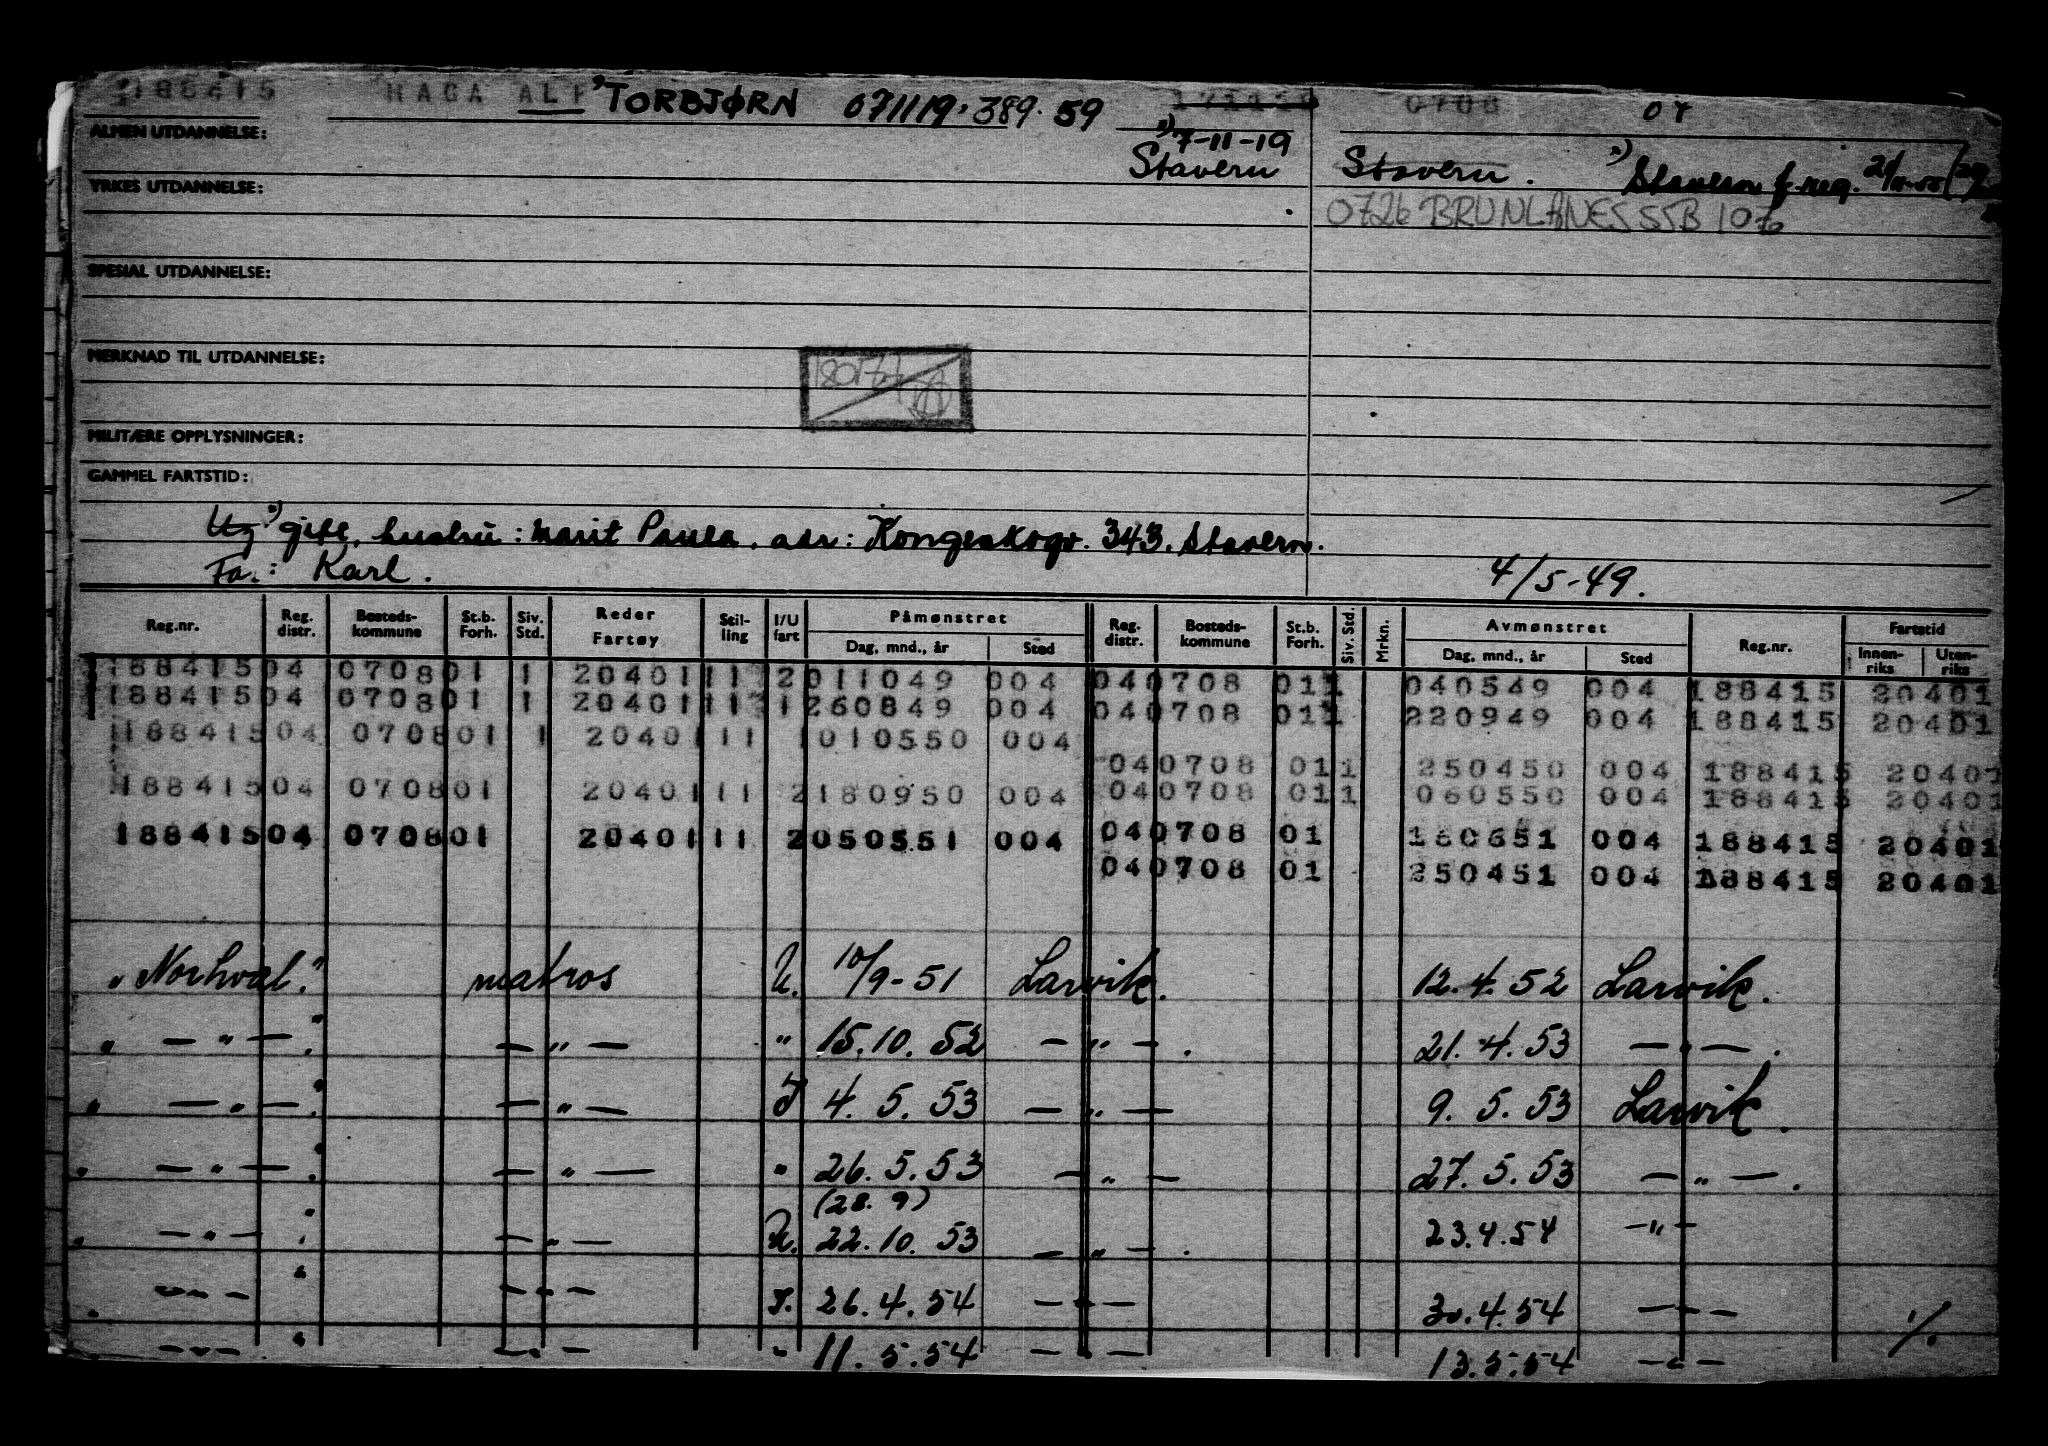 188415 HAGA ALF ⁾TORBJØRN 071119.389.59 171119 0708 04
ALMEN UTDANNELSE: ⁾7-11-19
Stavern Stavern. ⁾Stavern f. reg.
YRKES UTDANNELSE:
0726 BRUNLANES SSB 1076
SPESIAL UTDANNELSE:
MERKNAD TIL UTDANNELSE:
MILITÆRE OPPLYSNINGER:
GAMMEL FARTSTID:
Ug ⁾gift, hustru: Marit Paula, adr: Kongeskogv. 343, Stavern.
Fa.: Karl. 4/5-49.
Reg.nr. Reg. distr. Bosteds-kommune St.b. Forh. Siv. Std. Reder Fartøy Stil-ling I/U fart Påmønstret Dag, mnd., år Sted Reg. distr. Bosteds-kommune St.b. Forh. Siv. Std. Mrkn. Avmønstret Dag, mnd., år Sted Reg.nr. Fartstid Innen-riks Uten-riks
188415 04 0708 01 1 20401 11 2 011049 004 04 0708 01 1 040549 004 188415 20401
188415 04 0708 01 1 20401 11 1 260849 004 04 0708 01 1 220949 004 188415 20401
188415 04 0708 01 1 20401 11 1 010550 004
04 0708 01 1 250450 004 188415 20401
188415 04 0708 01 20401 11 2 180950 004 04 0708 01 1 060550 004 188415 20401
188415 04 0708 01 20401 11 2 050551 004 04 0708 01 180651 004 188415 20401
04 0708 01 250451 004 188415 20401
"Norhval." matros U. 10/9-51 Larvik. 12.4.52 Larvik.
" — " — ." — " — " 15.10.52 — " — . 21.4.53 — " — .
" — " — ." — " — I 4.5.53 — " — 9.5.53 Larvik.
" — " — ." — " — " 26.5.53 — " — 27.5.53 — " — .
(28.9)
" — " — ." — " — U. 22.10.53 — " — . 23.4.54 — " —
" — " — " — " — I. 26.4.54 — " — 30.4.54 — " — ./.
— " — " — " — " 11.5.54 — " — 13.5.54 — " —